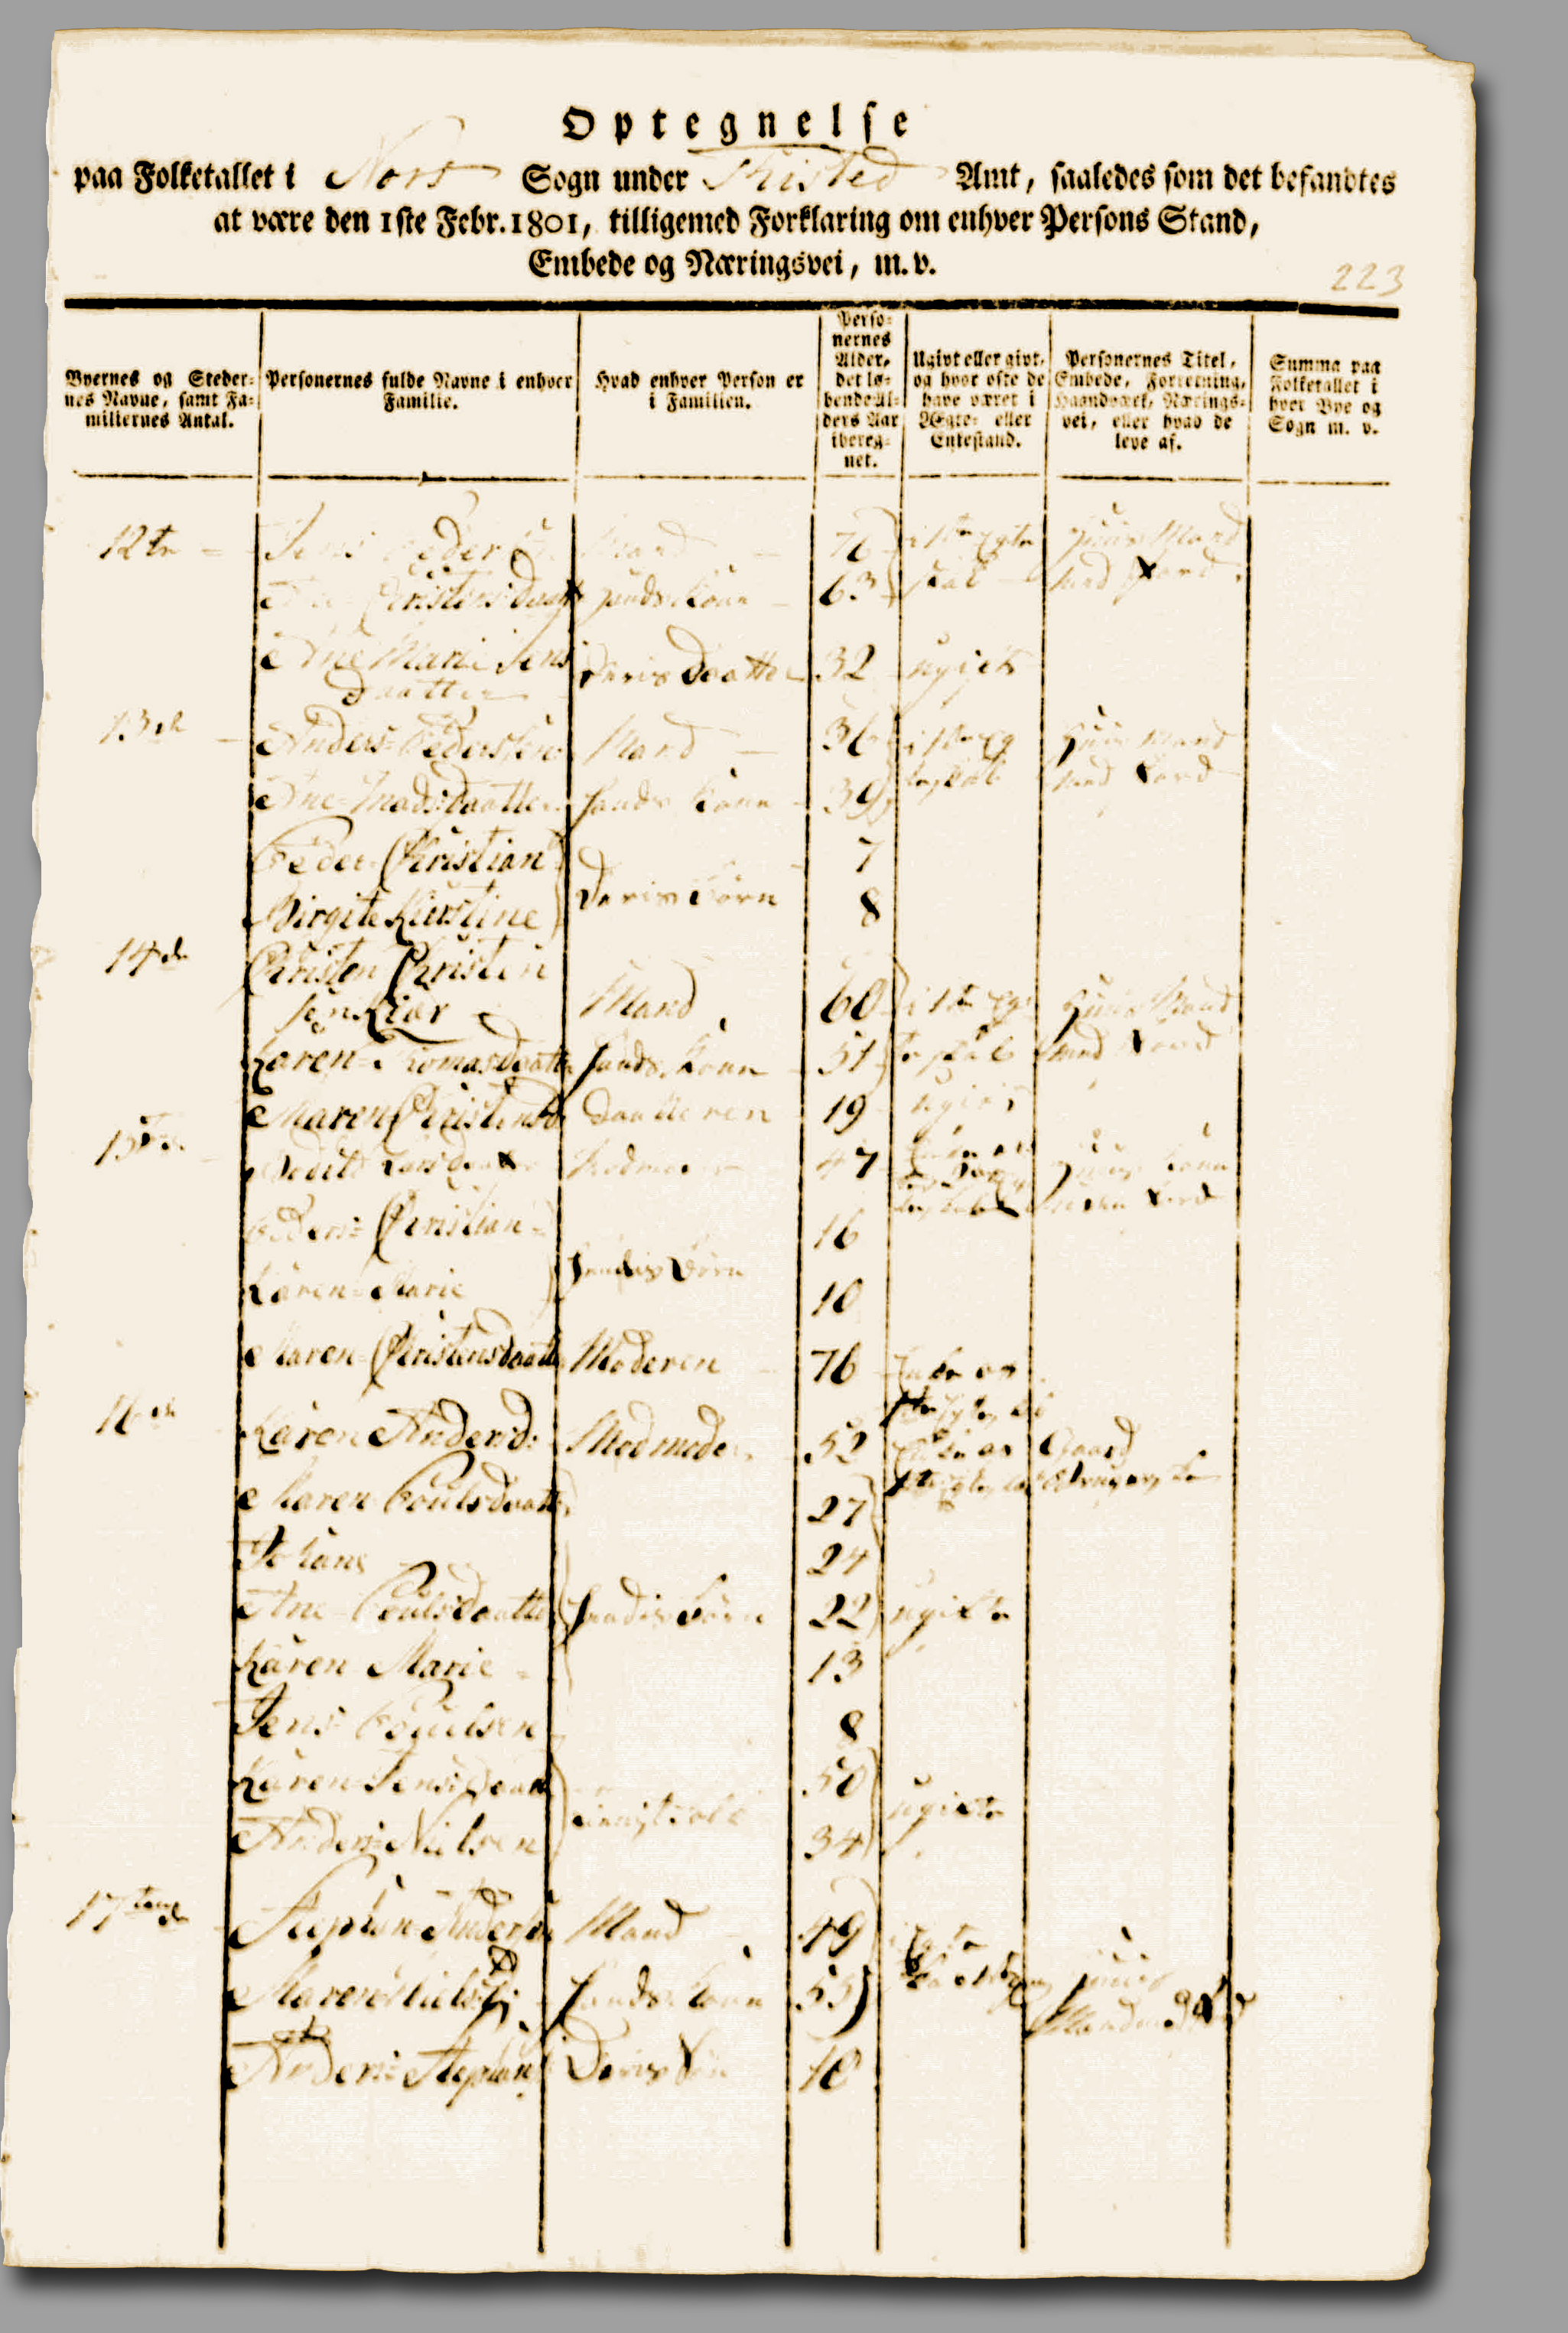 Optegnelse
paa Folketallet i Nors Sogn under Thisted Amt, saaledes som det befandtes
at være den 1ste Febr. 1801, tilligemed Forklaring om enhver Persons Stand,
Embede og Næringsvei, m. v.
223
Byernes og Steder-
nes Navne, samt Fa-
miliernes Antal.
Personernes fulde Navne i enhver
Familie.
Hvad enhver Person er
i Familien.
Perso-
nernes
Alder,
det lø-
bende Al-
ders Aar
ibereg-
net.
Ugivt eller givt,
og hvor ofte de
have været i
Ægte- eller
Enkestand.
Personernes Titel,
Embede, Forretning,
Haandværk, Nærings-
vei, eller hvad de
leve af.
Summa paa
Folketallet i
hver Bye og
Sogn m. v.
12te Jens Peders Mand 76 i 1te Egte Huus Mand
Christensdaatt hands Kone 63 skab med Jord
Ane Marie Jens
daatter deris Daatter 32 ugivt
13de Anders Pedersen Mand 36 i 1te Eg Huus Mand
Ane Madsdaatter hands Kone 39 teskab med Jord
Peder Christian 7
Birgite Kirstine deris Børn 8
14de Christen Christen
sen Kiær Mand 60 i 1te Eg Huus Mand
Karen Thomasdaatter hands Kone 51 teskab med Jord
Maren Christensd Daatteren 19 ugivt
15de Larsdaatter Madmoder 47 Huus Kone
Christian 16
Karen Marie hendis Børn 10
Maren Christensdaatter Moderen 76 Enke
16de Karen Andersd: Madmoder 52 Gaard
Maren Poulsdaatt 27
Johane 24
Ane Poulsdaatter hendis Børn 22 ugivte
Karen Marie 13
Jens Poulsen 8
Karen Jensdaatt 50
Anders Nielsen 34 ugivte
17tende Stephan Andersen Mand 49
Maren Nielsd: hands Kone 55 Huus
Mand med Jord
Anders Stephans deris Søn 10